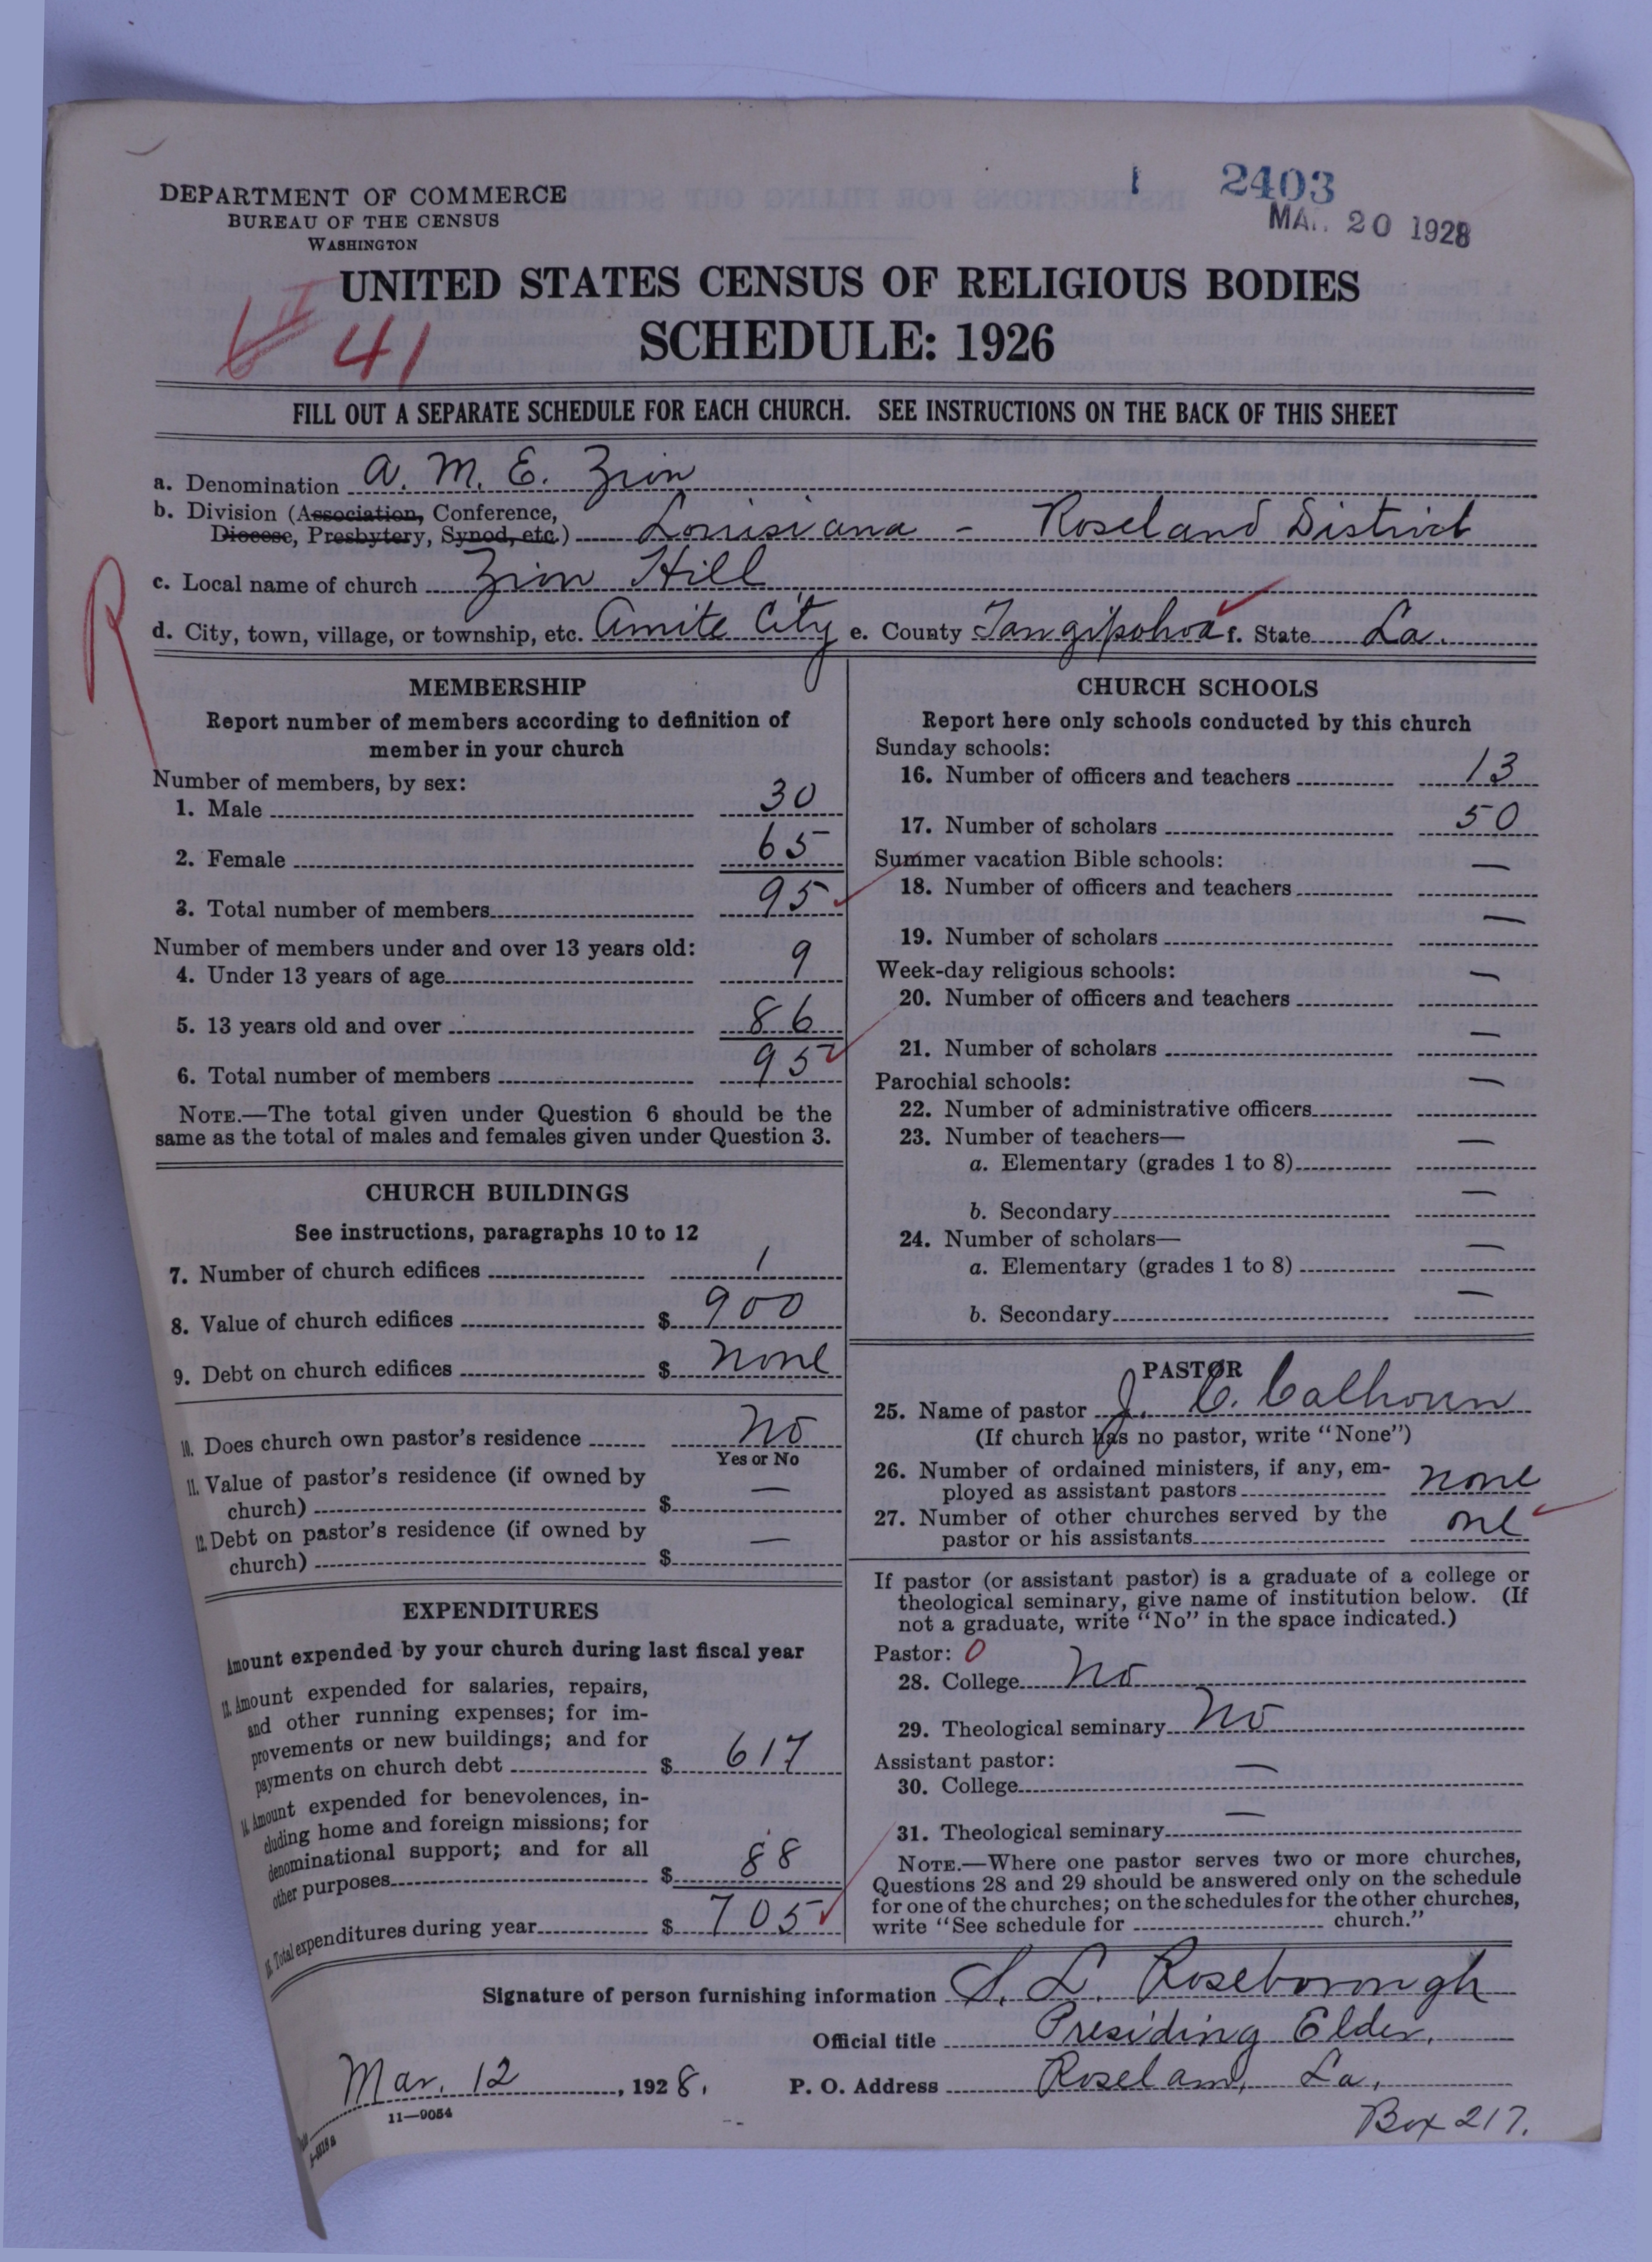 1 2403
MAR. 20 1928
DEPARTMENT OF COMMERCE
BUREAU OF THE CENSUS
WASHINGTON
UNITED STATES CENSUS OF RELIGIOUS BODIES
41 SCHEDULE: 1926
FILL OUT A SEPARATE SCHEDULE FOR EACH CHURCH. SEE INSTRUCTIONS ON THE BACK OF THIS SHEET
a. Denomination A. M. E. Zion
b. Division (Association, Conference,
Diocese, Presbytery, Synod, etc.) Louisiana - Roseland District
c. Local name of church Zion Hill
R
d. City, town, village, or township, etc. Amite City e. County Tangipohoa f. State La.
MEMBERSHIP
Report number of members according to definition of
member in your church
Number of members, by sex:
1. Male 30
2. Female 65
3. Total number of members 95
Number of members under and over 13 years old:
4. Under 13 years of age 9
5. 13 years old and over 86
6. Total number of members 95
NOTE.—The total given under Question 6 should be the
same as the total of males and females given under Question 3.
CHURCH BUILDINGS
See instructions, paragraphs 10 to 12
7. Number of church edifices 1
8. Value of church edifices $ 900
9. Debt on church edifices $ none
10. Does church own pastor's residence No
Yes or No
11. Value of pastor's residence (if owned by
church) $ —
12. Debt on pastor's residence (if owned by
church) $ —
EXPENDITURES
Amount expended by your church during last fiscal year
13. Amount expended for salaries, repairs,
and other running expenses; for im-
provements or new buildings; and for
payments on church debt $ 617
14. Amount expended for benevolences, in-
cluding home and foreign missions; for
denominational support; and for all
other purposes $ 88
15. Total expenditures during year $ 705
CHURCH SCHOOLS
Report here only schools conducted by this church
Sunday schools:
16. Number of officers and teachers 13
17. Number of scholars 50
Summer vacation Bible schools:
18. Number of officers and teachers —
19. Number of scholars —
Week-day religious schools:
20. Number of officers and teachers —
21. Number of scholars —
Parochial schools:
22. Number of administrative officers —
23. Number of teachers—
a. Elementary (grades 1 to 8) —
b. Secondary —
24. Number of scholars—
a. Elementary (grades 1 to 8) —
b. Secondary —
PASTOR
25. Name of pastor J. C. Calhoun
(If church has no pastor, write "None")
26. Number of ordained ministers, if any, em-
ployed as assistant pastors none
27. Number of other churches served by the
pastor or his assistants one
If pastor (or assistant pastor) is a graduate of a college or
theological seminary, give name of institution below. (If
not a graduate, write "No" in the space indicated.)
Pastor: 0
28. College No
29. Theological seminary No
Assistant pastor:
30. College —
31. Theological seminary —
NOTE.—Where one pastor serves two or more churches,
Questions 28 and 29 should be answered only on the schedule
for one of the churches; on the schedules for the other churches,
write "See schedule for church."
Signature of person furnishing information S. L. Roseborough
Official title Presiding Elder.
Mar. 12, 1928. P. O. Address Roseland, La.
11—9054
Box 217.